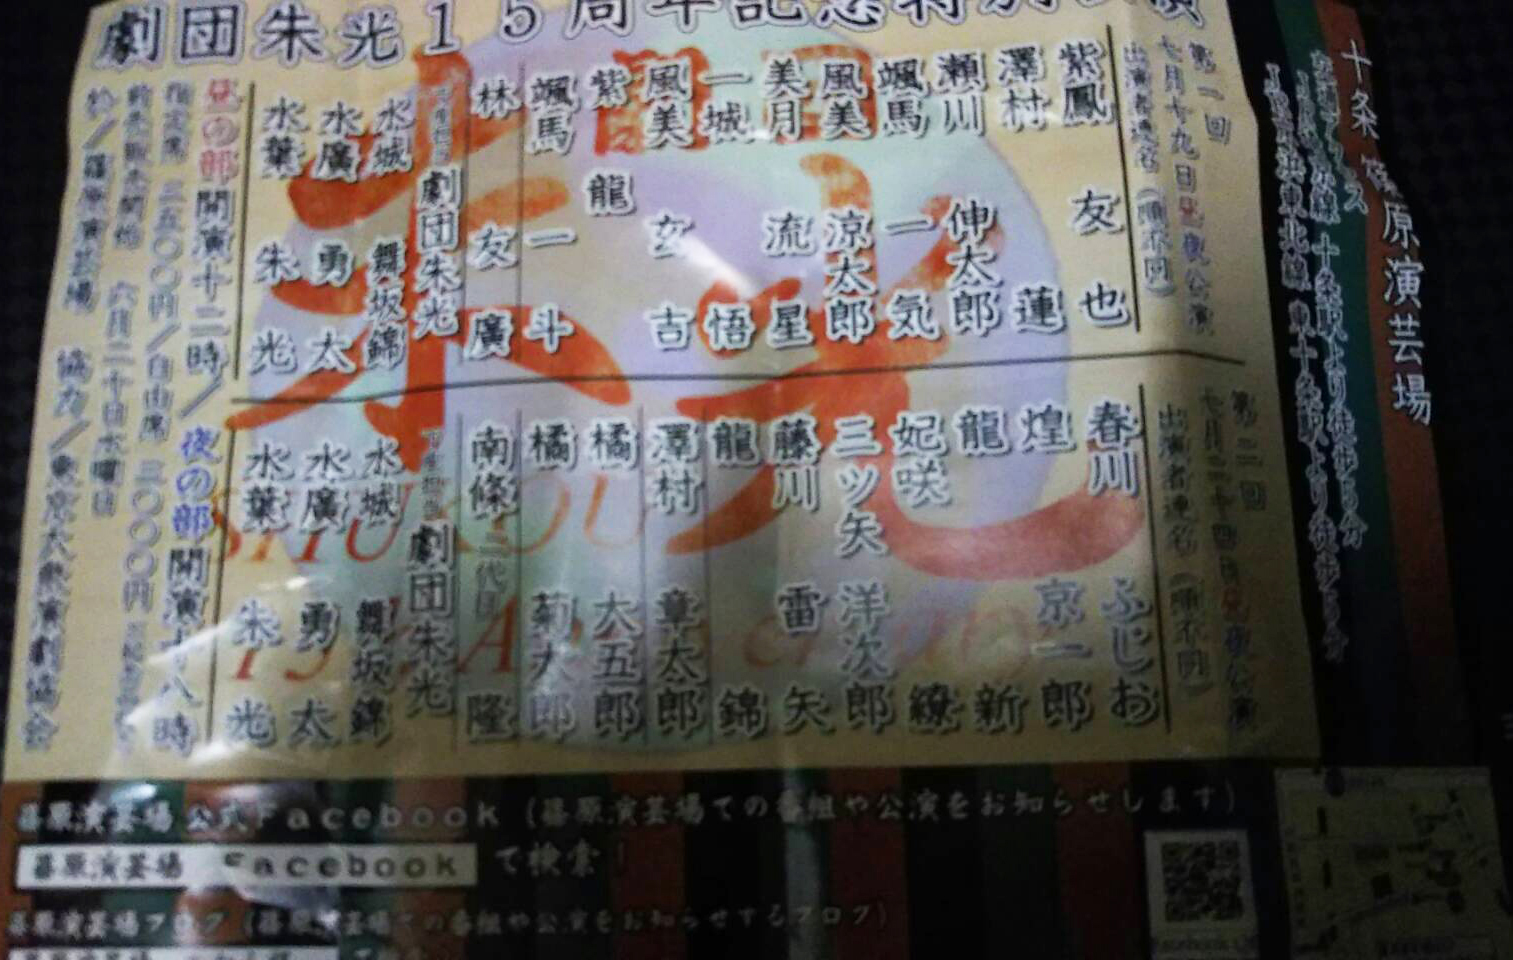 劇団朱光15周年記念特別公演
十条 篠原演芸場
第一回
七月十九日昼夜公演
出演者連名(順不同)
紫鳳友也
澤村蓮
瀬川伸太郎
颯馬一気
風美涼太郎
美月流星
一城悟
風美玄吉
紫龍
颯馬一斗
林友廣
劇団朱光
水城舞坂錦
水廣勇太
水葉朱光
昼の部開演十二時/夜の部開演十八時
指定席 三五〇〇円/自由席 三〇〇〇円
前売販売開始 六月二十日水曜日
於/篠原演芸場 協力/東京大衆演劇協会
出演者連名(順不同)
春川ふじお
煌京一郎
龍新
妃咲繚
三ツ矢洋次郎
藤川雷矢
龍錦
澤村章太郎
橘大五郎
橘菊太郎
二代目
南條隆
劇団朱光
水城舞坂錦
水廣勇太
水葉朱光
SHUKOU
篠原演芸場公式Facebook(篠原演芸場での番組や公演をお知らせします)
篠原演芸場 Facebook で検索!
篠原演芸場ブログ(篠原演芸場での番組や公演をお知らせするブログ)